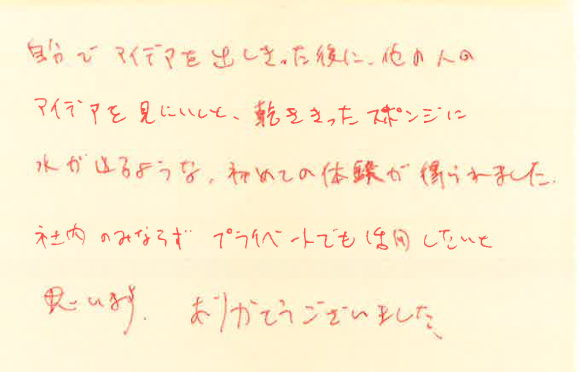 自分でアイデアを出しきった後に、他の人の
アイデアを見にいくと、乾ききったスポンジに
水が辿るような、初めての体験が得られました。
社内のみならず プライベートでも活用したいと
思います。 ありがとうございました。